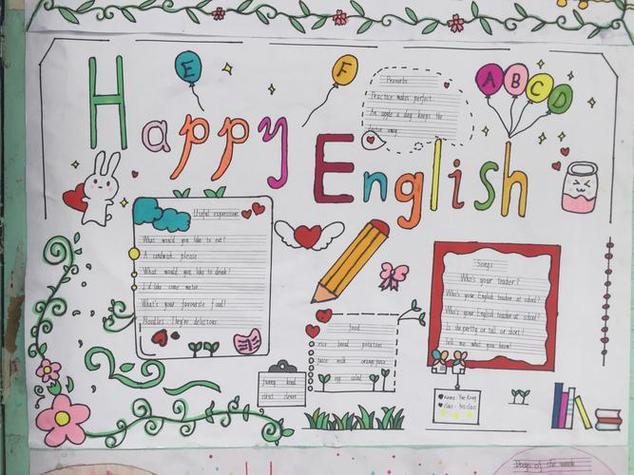 E
F
A B C D
Happy
English
Proverb
Practice makes perfect
An apple a day keeps the
away
Useful expressions
What would you like to eat?
A sandwich please
What would you like to drink?
I'd like some water
What's your favourite food?
Noodles They're delicious
Songs
Who's your teacher?
Who's your English teacher at school?
Who's your English teacher at school?
Is she pretty or tall or short?
Tell me what you know!
food
rice bread potatoes
juice milk orange juice
egg salad
funny kind
strict clever
name:
class: